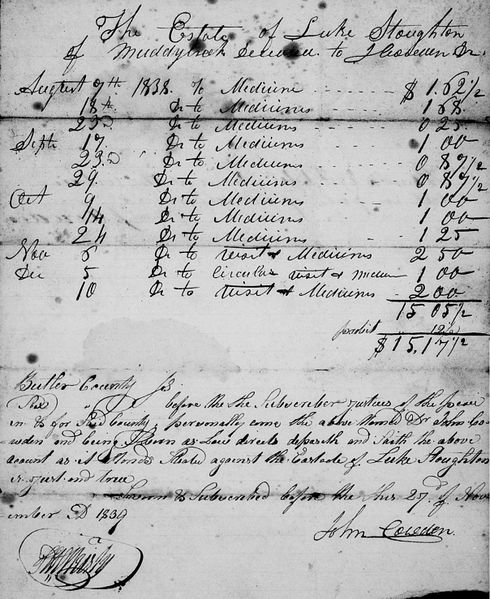 The Estate of Luke Stoughton
of Muddycrick Deceased to J Cowden Dr.
August 9th 1838. To Medicine $1.62 1/2
18th Dr to Mediciens 1 68
23d Dr to Mediciens 0 25
Sept 17. Dr to Mediciens 1 00
23d Dr to Mediciens 0 87 1/2
29. Dr to Mediciens 0 87 1/2
Oct 9 Dr to Mediciens 1 00
14 Dr to Mediciens 1 00
24 Dr to Mediciens 1 25
Nov 6 Dr to visit & Mediciens 2 50
Dec 5 Dr to visit & 1 00
10 Dr to visit & Mediciens 2 00
15 05 1/2
12
$15,17 1/2
Butler County
before the the Subscriber Justices of the peace
in & for Said County personally come the above Named Dr John Co=
wden and being Sworn as Law directs deposeth and Saith the above
acount as it Stands Stated against the Eastade of Luke Stoughton
is just and true
Sworn & Subscribed before the this 27th of Nov
ember AD 1839
John Cowden